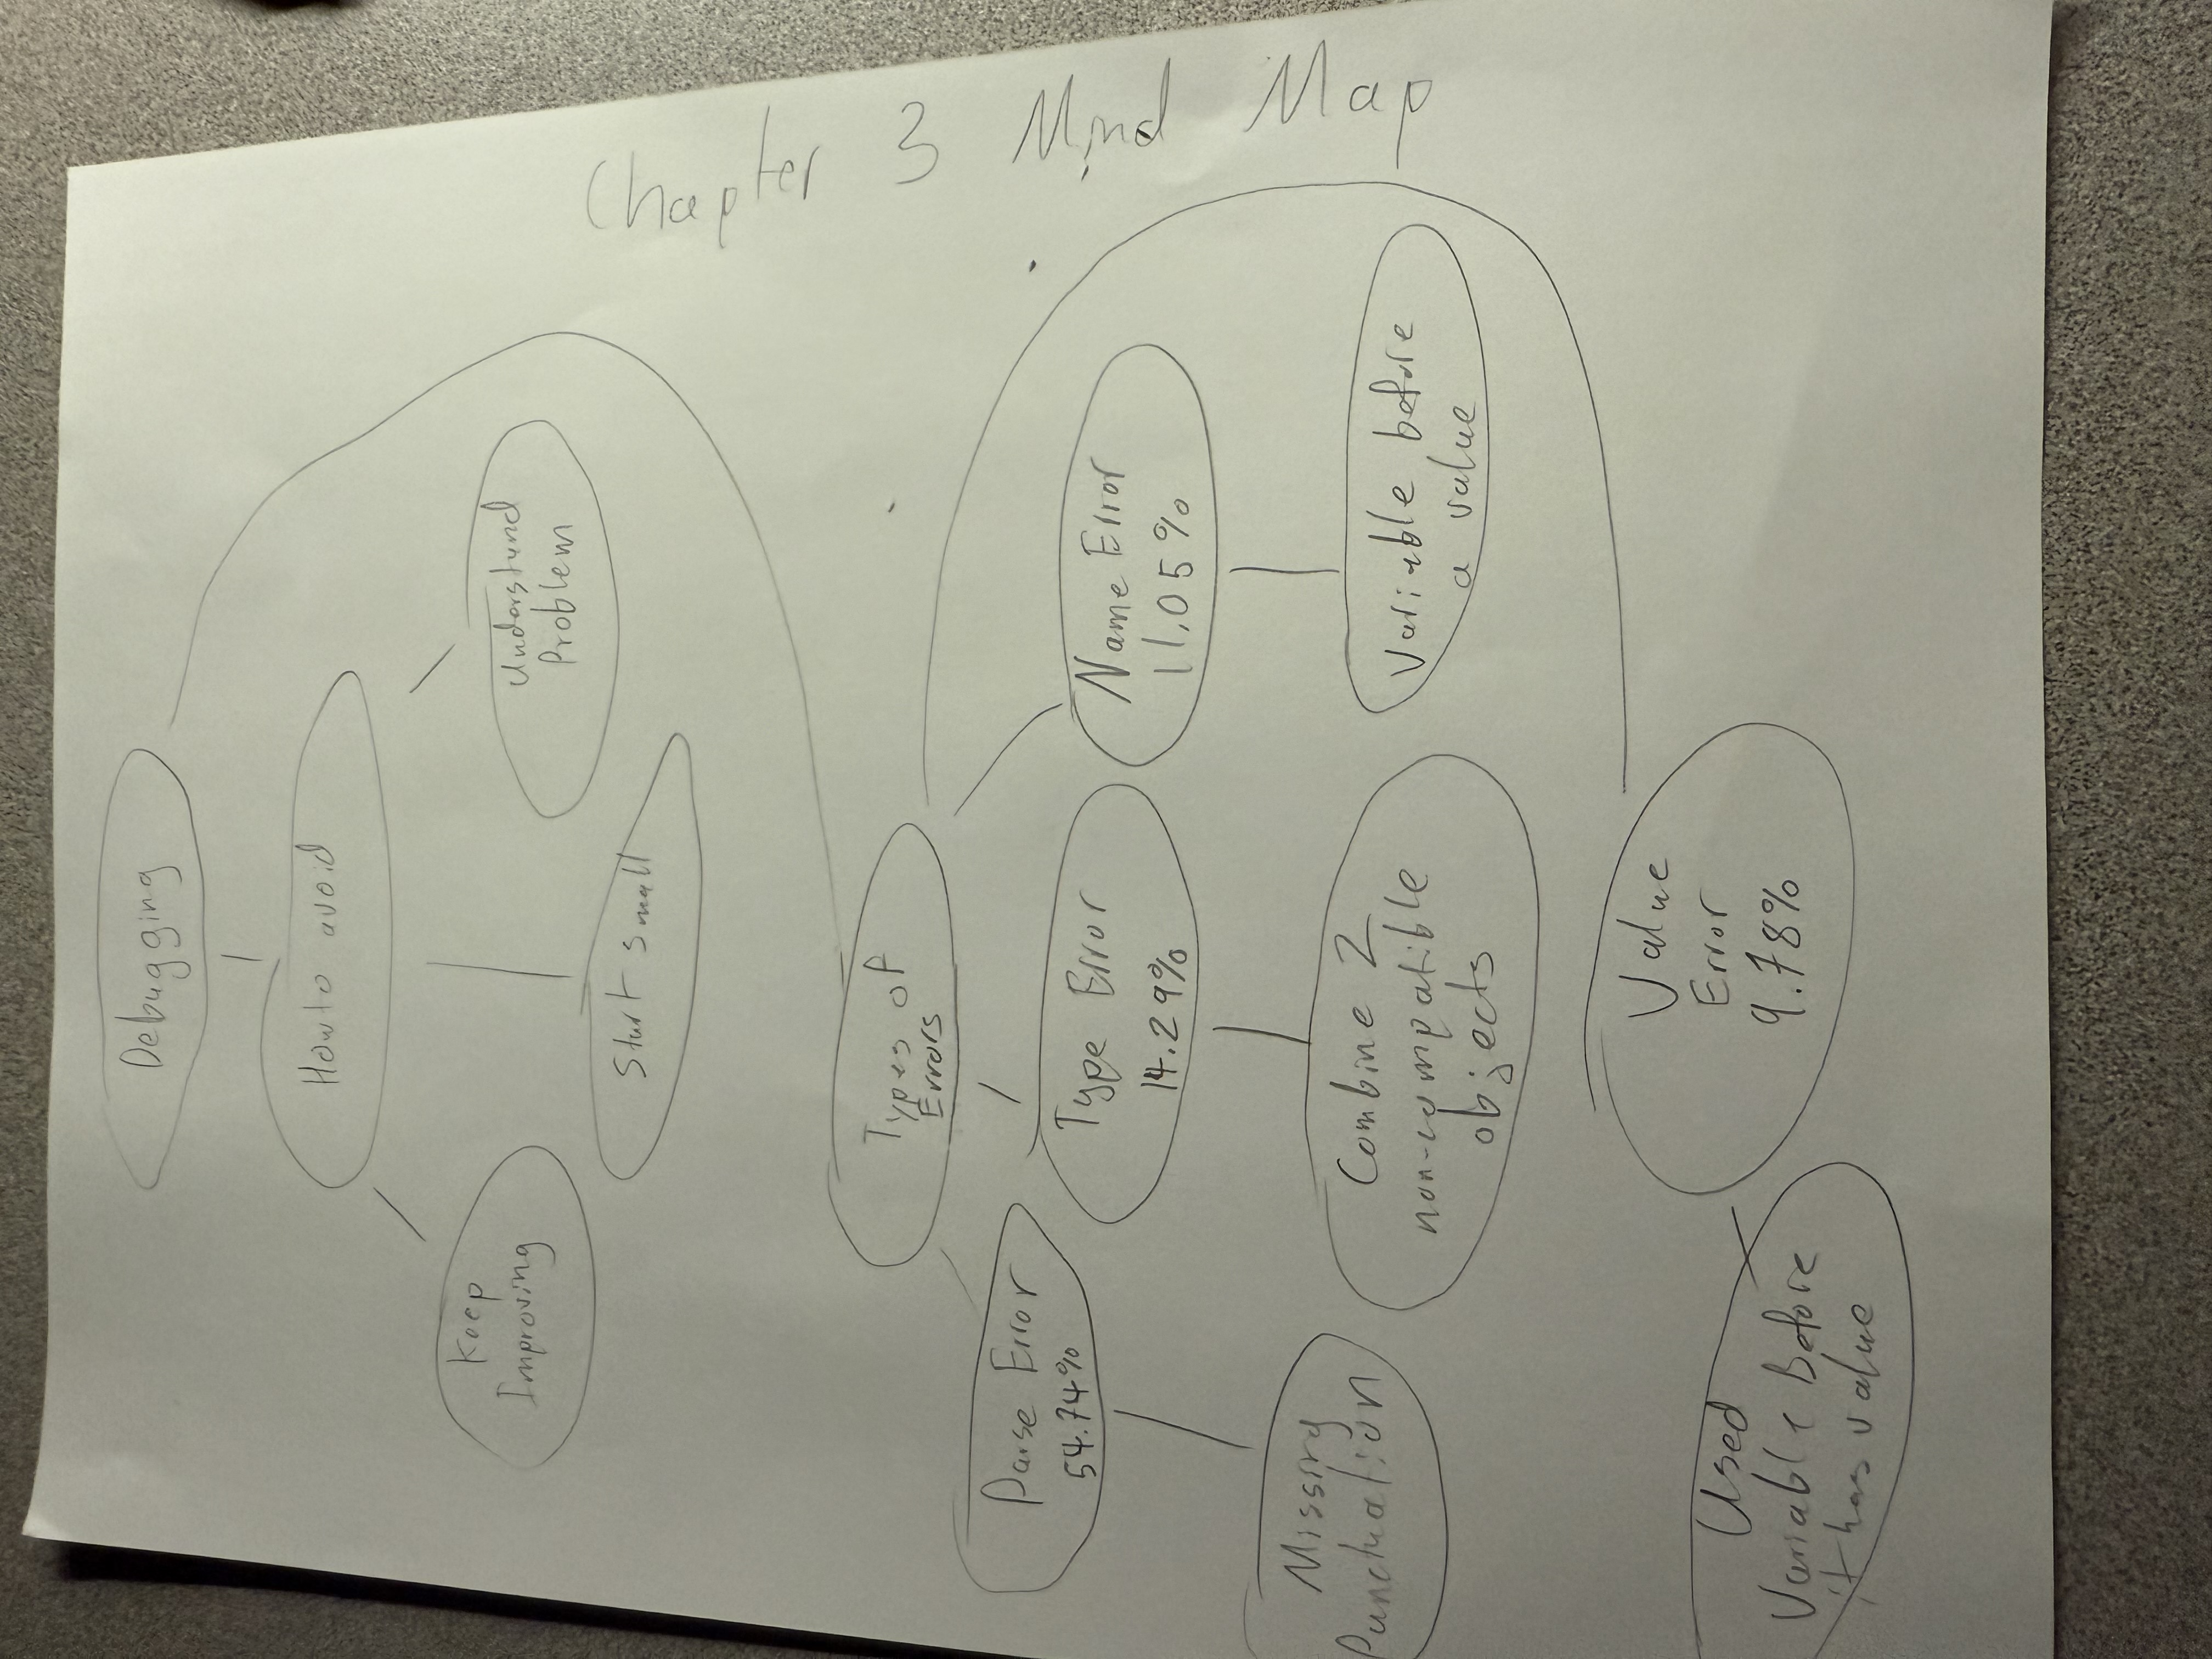 Debugging
How to avoid
Keep
Improving
Understand
Problem
Start small
Chapter 3 Mind Map
Types of
Errors
Parse Error
54.74%
Type Error
14.29%
Name Error
11.05%
Missing
Punctuation
Combine 2
non-compatible
objects
Variable before
a value
Value
Error
9.78%
Used
Variable Before
it has value